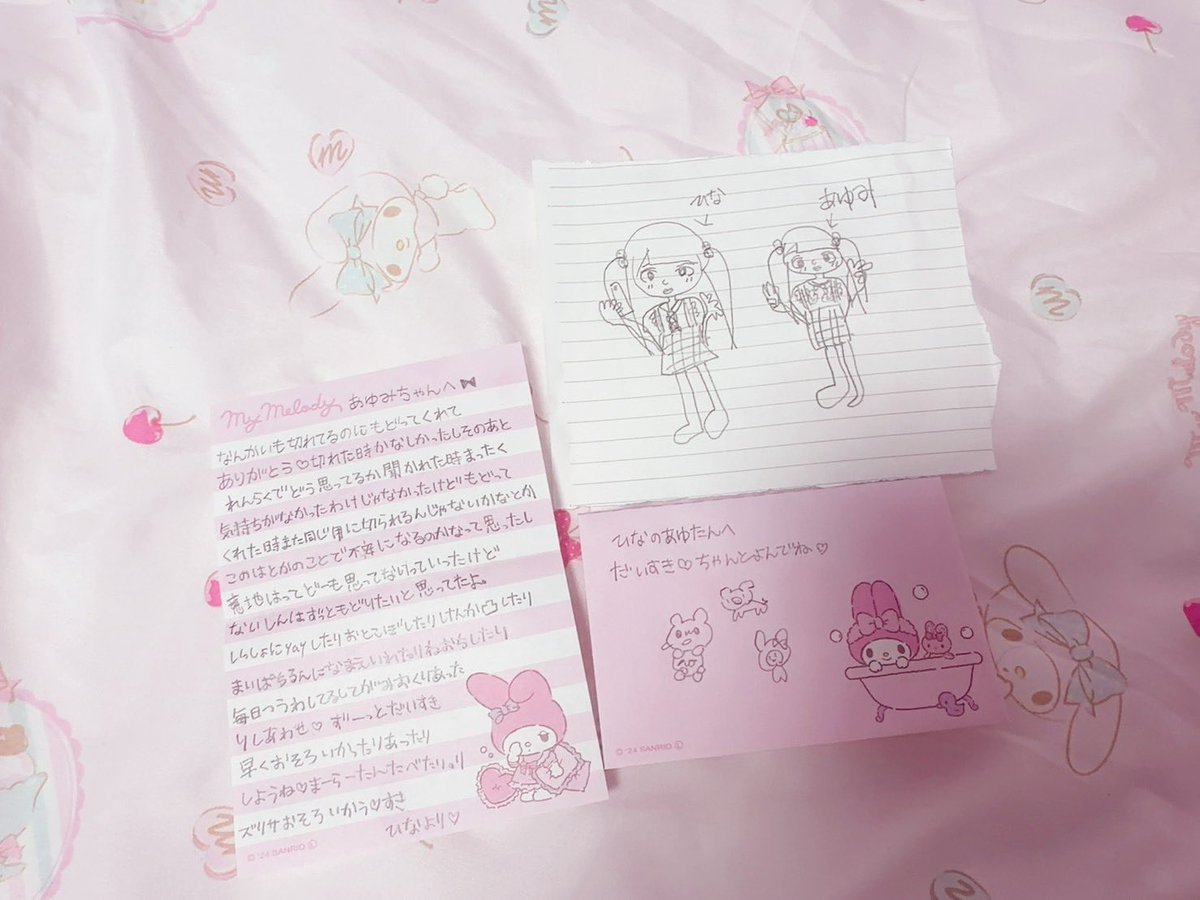 My Melody あゆみちゃんへ
なんかいも切れてるのにもどってくれて
ありがとう♡切れた時かなしかったしそのあと
れんらくでどう思ってるか聞かれた時まったく
気持ちがなかったわけじゃなかったけどもどって
くれた時また同じ に切られるんじゃないかなとか
このはとかのことで不安になるのかなって思ったし
意地はってどーも思ってないっていったけど
ないしんはずっともどりたいと思ってたよ。
いっしょにyayしたりおとこぼしたりけんか したり
まいぱちるんになまえいれたりねおちしたり
毎日つうわしてるしてがみおくりあった
りしあわせ♡ ずーっとだいすき
早くおそろいかったりあったり
しようね♡まーらーたんたべたりっり
ズリサおそろいかう♡すき
ひなより♡
© '24 SANRIO Ⓛ
ひな
あゆみ
ひなのあゆたんへ
だいすき♡ちゃんとよんでね♡
© '24 SANRIO Ⓛ